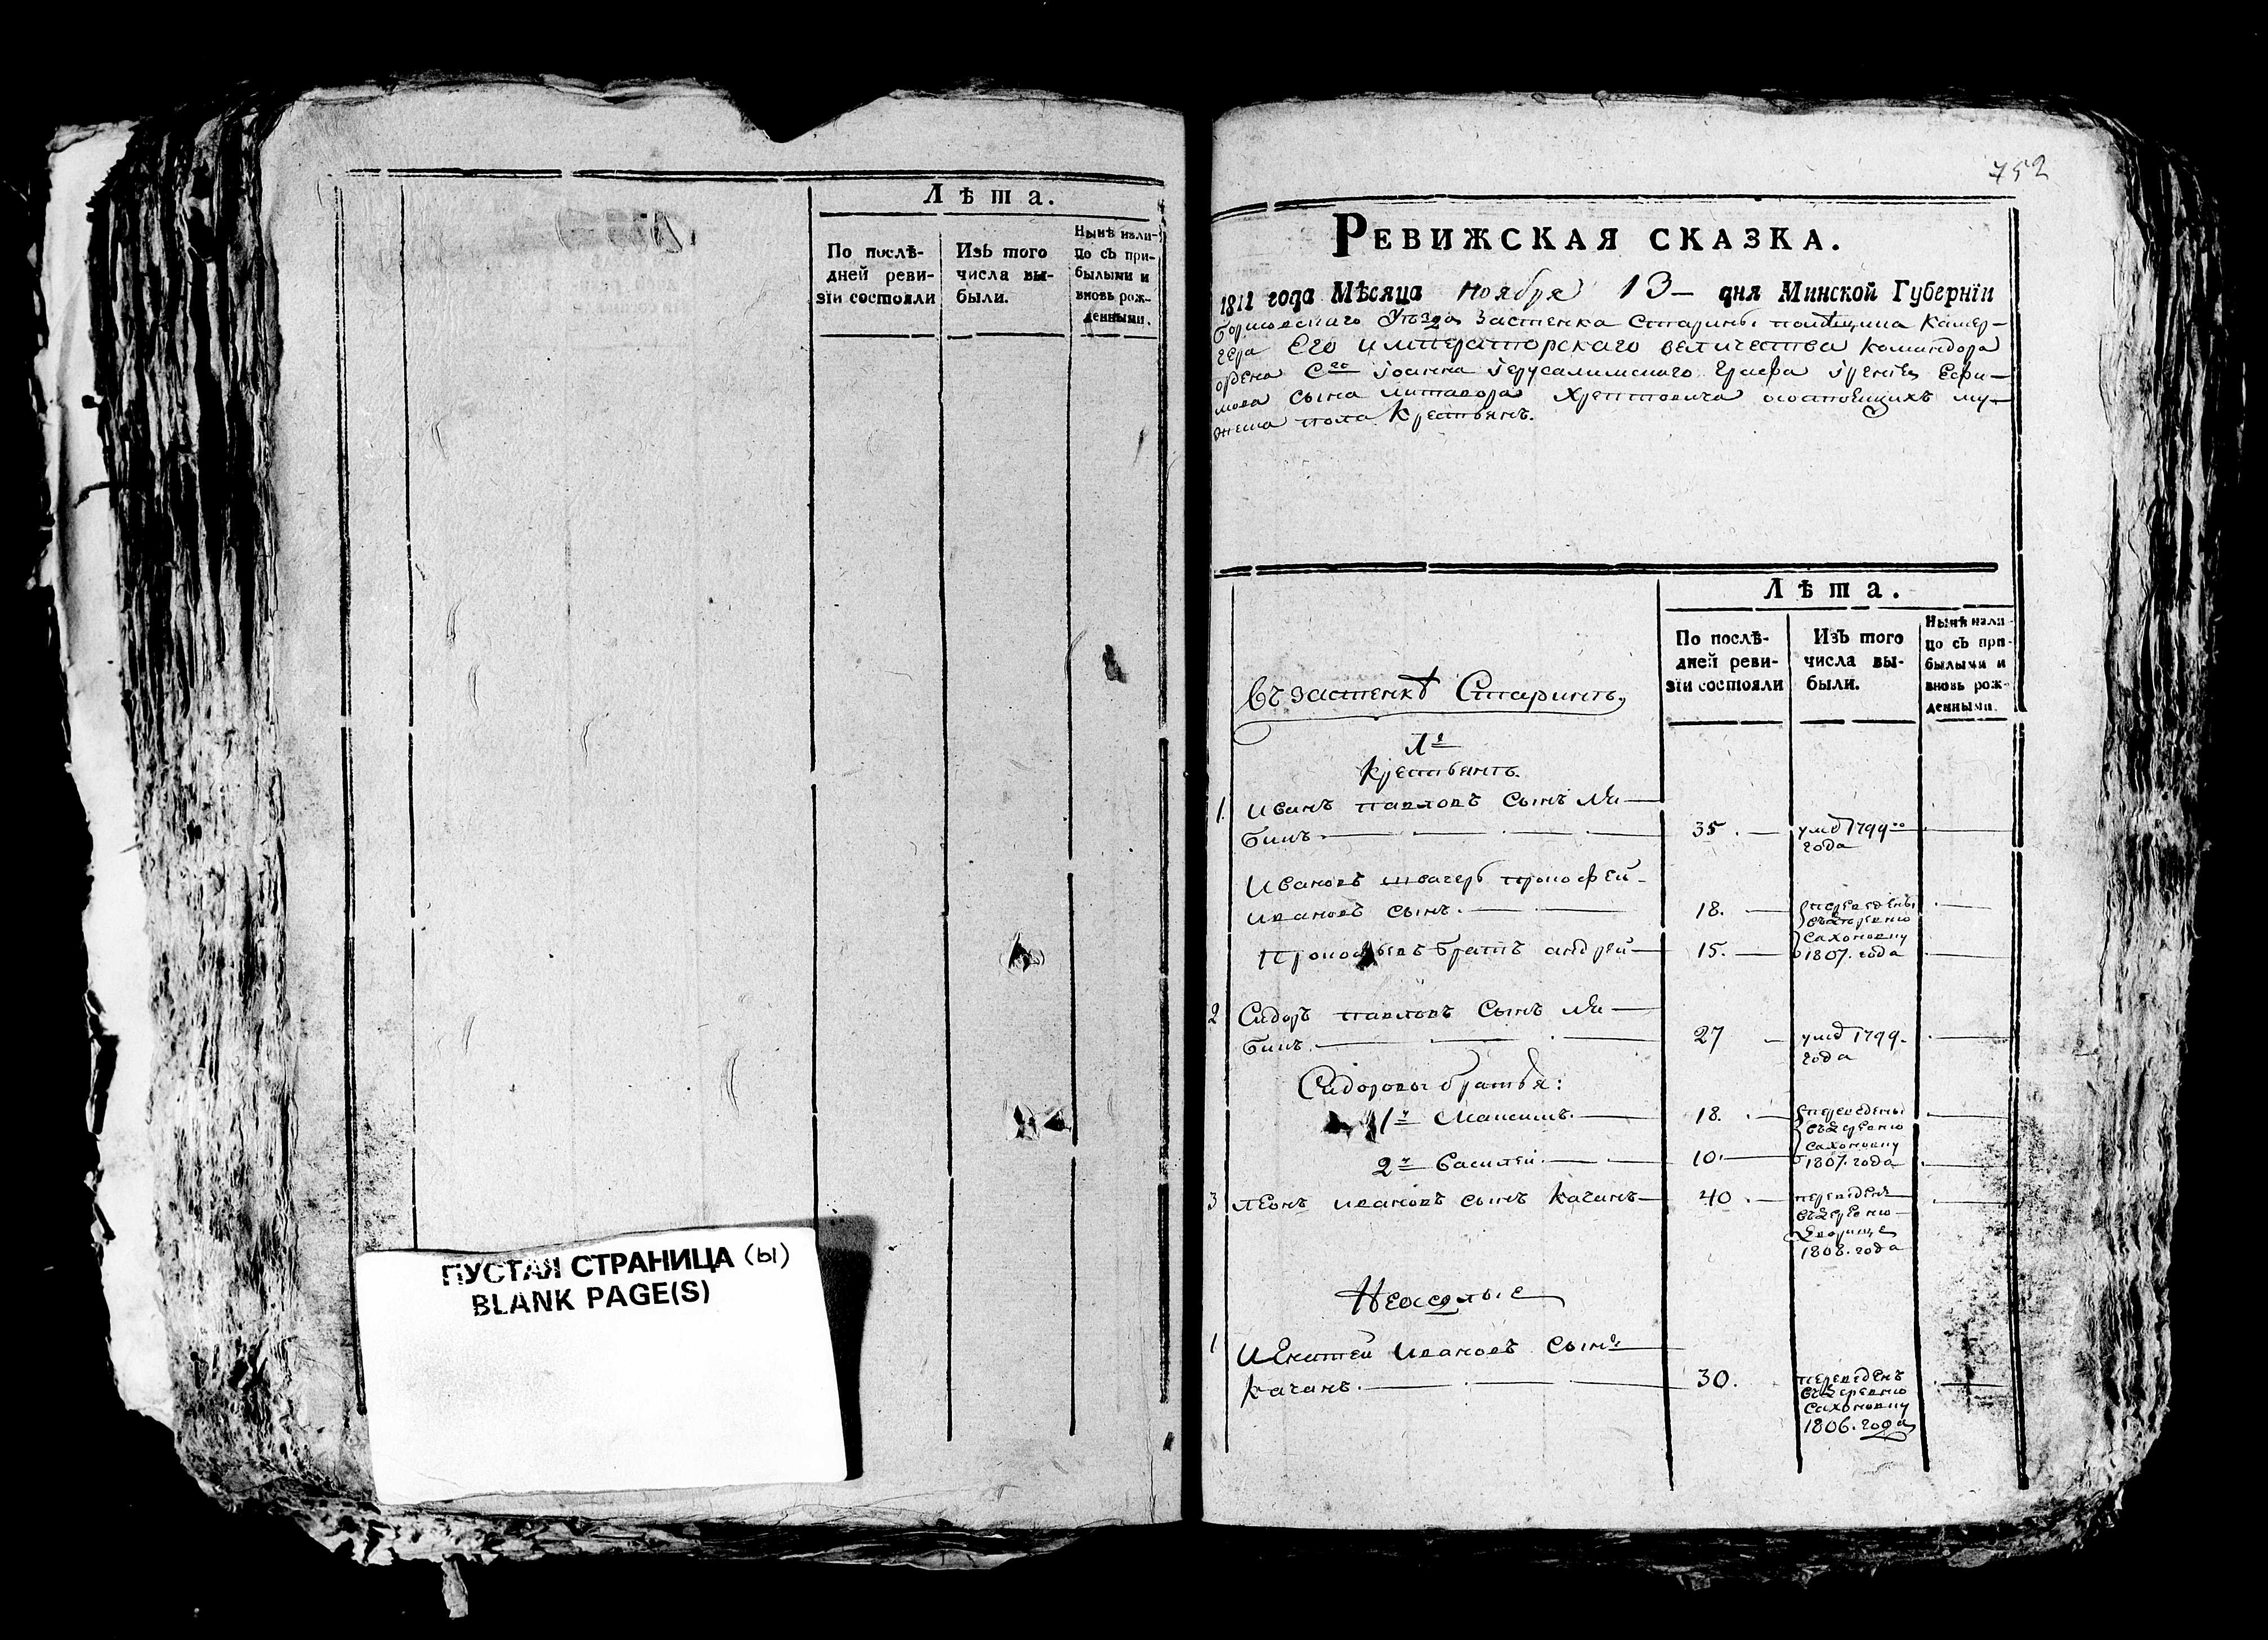 Лѣта.
По послѣ-
дней реви-
зіи состояли
Изъ того
числа вы-
были.
Нынѣ нали-
цо съ при-
былыми и
вновь рож-
денными.
ПУСТАЯ СТРАНИЦА (ы)
BLANK PAGE(S)
752
РЕВИЖСКАЯ СКАЗКА.
1811 года Мѣсяца ноября 13 дня Минской Губерніи
Борисовскаго Уѣзда Застенка Старины помѣщика Камер-
гера Его императорскаго величества командора
ордена Сго Iоанна Iерусалимскаго графа Iренея
сына литавора Хрептовича состоящихъ му-
жеска пола Крестьянъ.
Лѣта.
По послѣ-
дней реви-
зіи состояли
Изъ того
числа вы-
были.
Нынѣ нали-
цо съ при-
былыми и
вновь рож-
денными.
Въ застенкѣ Старинѣ
крестьянъ.
1. Иванъ павловъ сынъ
35. умѣ 1799го
года
Ивановъ швагеръ прокофей
ивановъ сынъ. 18. переведены
въ деревню
Сахоновку
1807. года
Прокофьевъ братъ андрей 15.
2 Сидоръ павловъ сынъ
27 умѣ 1799.
года
Сидоровы братья:
1й Максимъ. 18. переведены
въ деревню
сахоновку
1807. года
2й Василей. 10.
3 леонъ ивановъ сынъ качанъ 40. переведенъ
въ деревню
Дворище
1808. года
Неоседлые
1 Ивановъ сынъ
качанъ. 30. переведенъ
въ деревню
сахоновку
1806. года